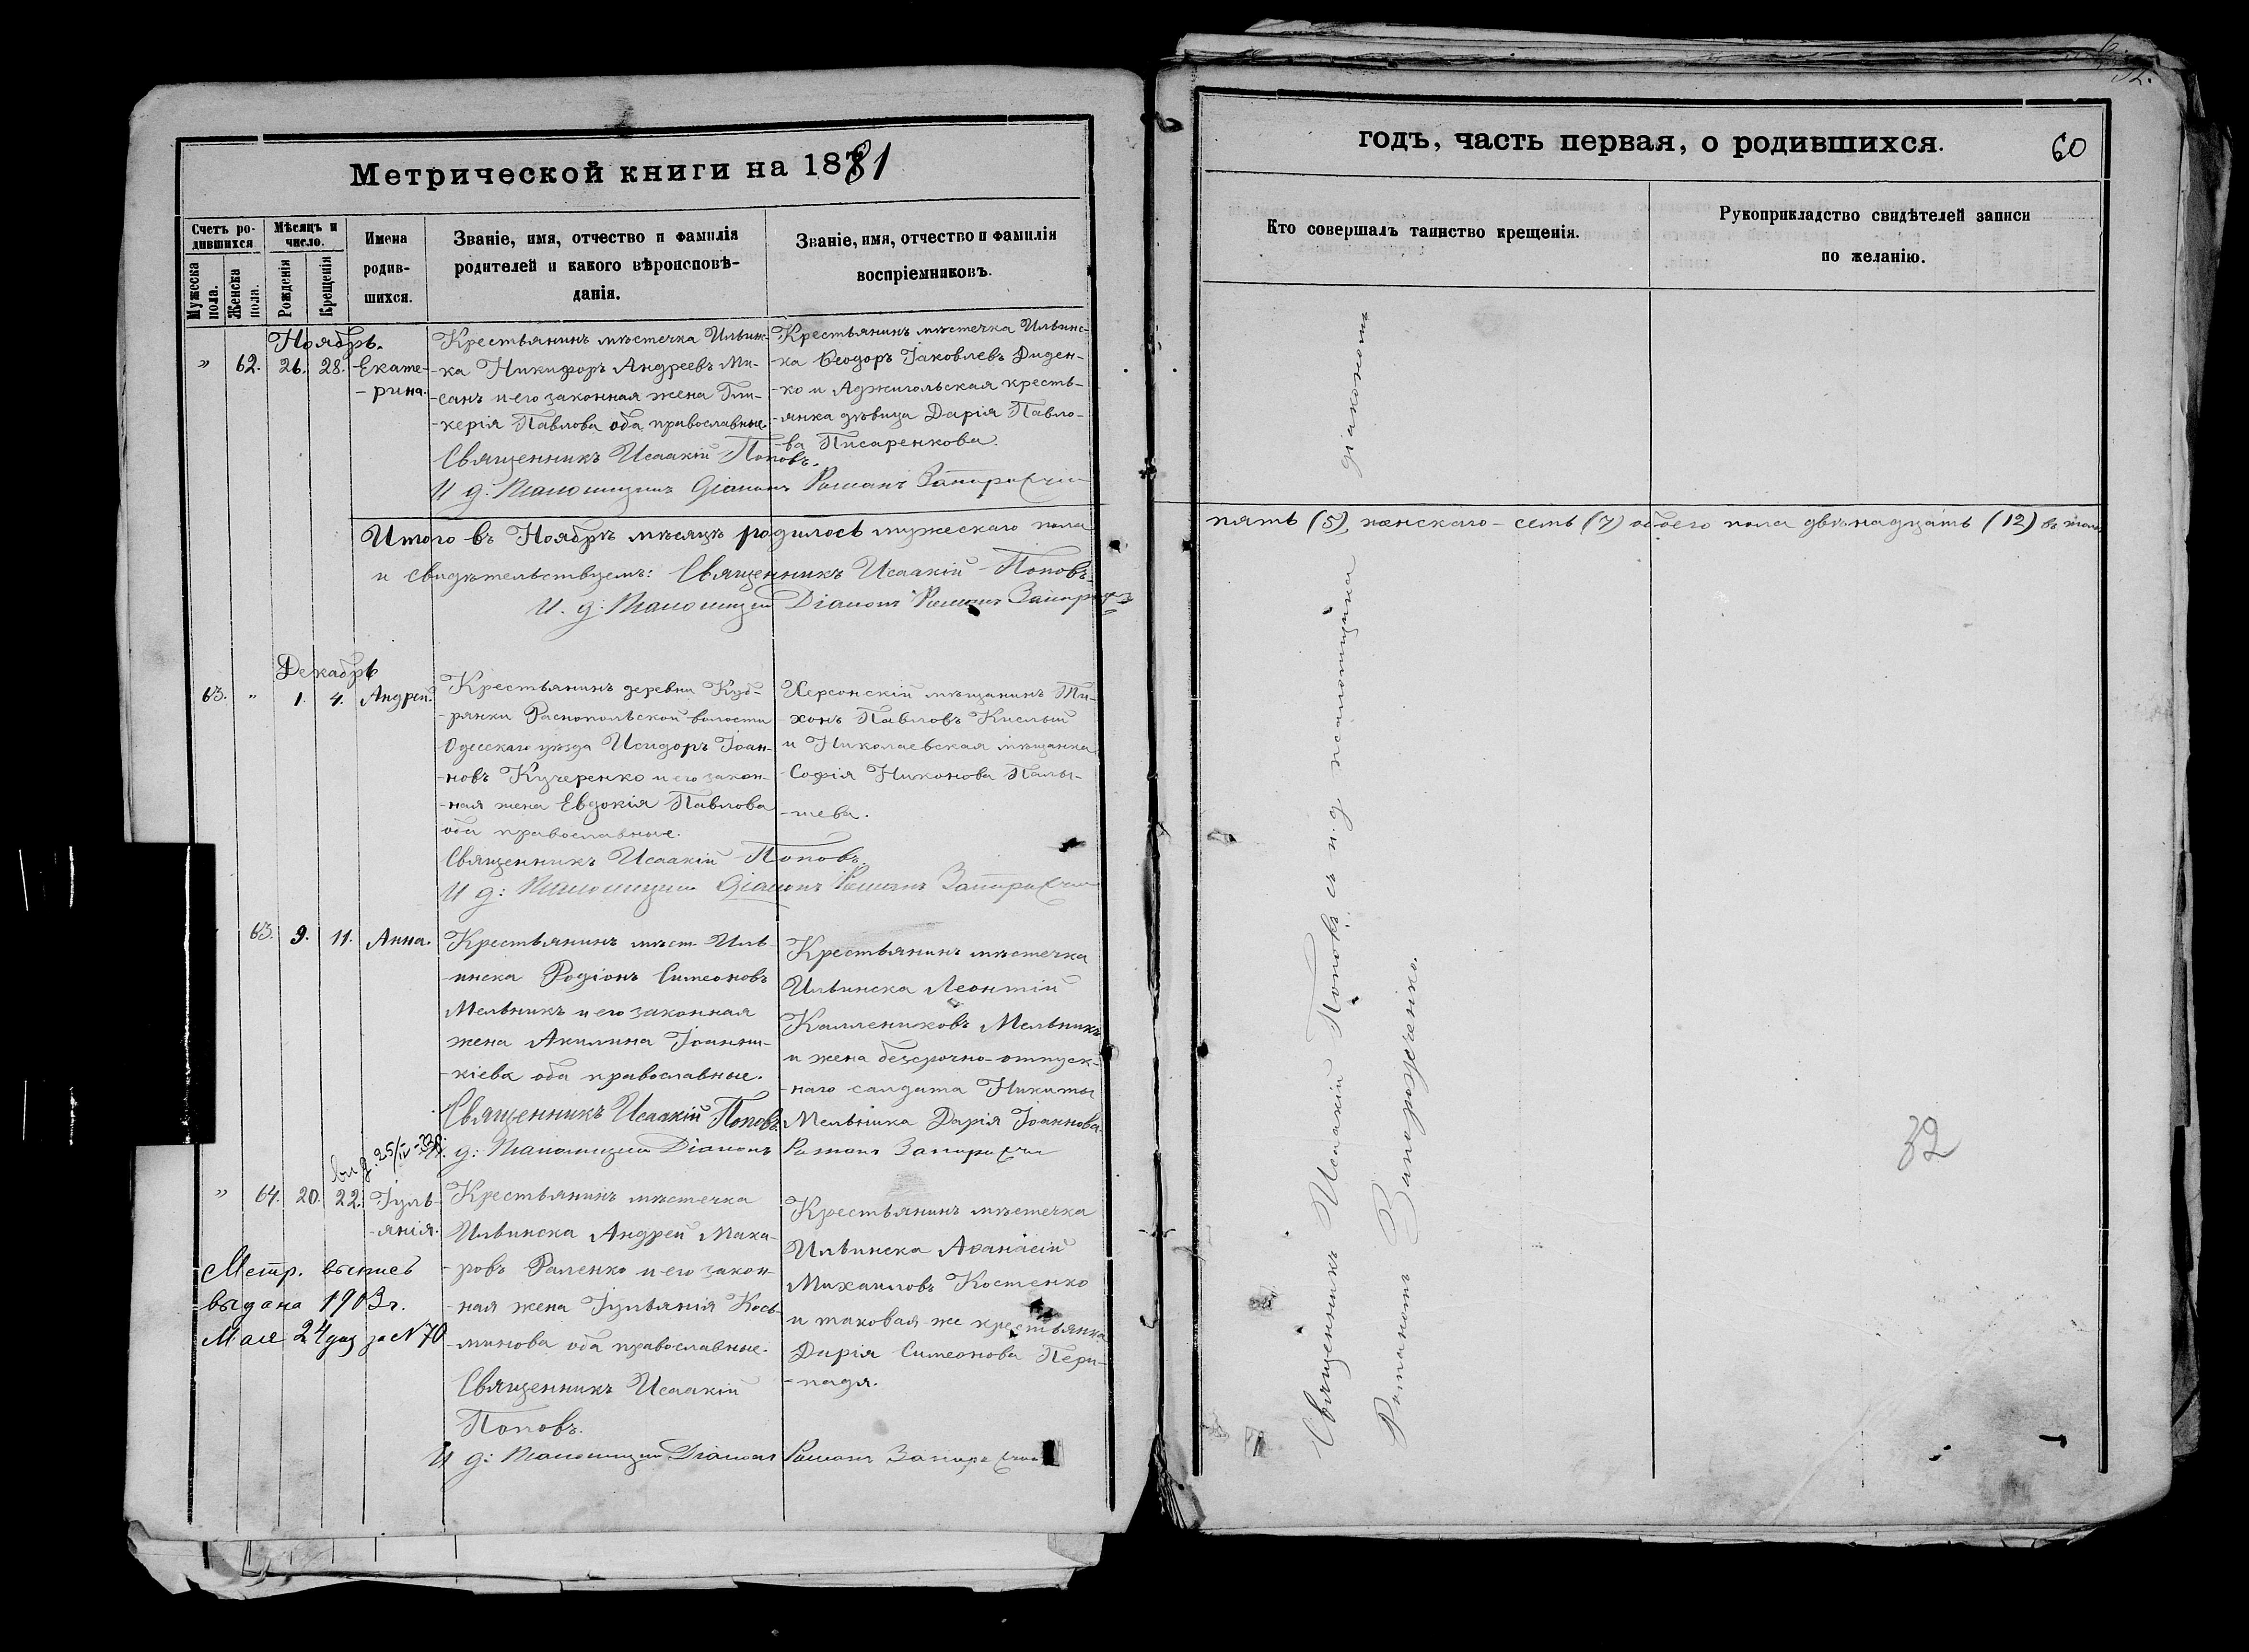 Метрической книги на 1881
Счетъ ро-
дившихся
Мужеска пола.
Женска пола.
Мѣсяцъ и
число.
Рожденія
Крещенія
Имена
родив-
шихся.
Званіе, имя, отчество и фамилія
родителей и какого вѣроисповѣ-
данія.
Званіе, имя, отчество и фамилія
воспріемниковъ.
Ноябрь.
" 62. 26. 28. Екате-
-рина.
Крестьянинъ мѣстечка Ильин-
-ка Никифоръ Андреевъ Ми-
-санъ и его законная жена Гли-
-керія Павлова оба православные.
Священникъ Исаакій Поповъ.
И д. Діаконъ Романъ
Крестьянинъ мѣстечка Ильинс-
-ка Ѳеодоръ Іаковлевъ Диден-
-ко и Аджигольская кресть-
-янка дѣвица Дарія Павло-
-ва Писаренкова.
Итого въ Ноябрѣ мѣсяцѣ родилось мужескаго пола
и свидѣтельствуемъ: Священникъ Исаакій Поповъ
И. д: Діаконъ Романъ
Декабрь
63. " 1. 4. Андрей.
Крестьянинъ деревни Куб-
-рянки Распопольской волости
Одесскаго уѣзда Исидоръ Іоан-
-новъ Кучеренко и его закон-
-ная жена Евдокія Павлова
оба православные.
Священникъ Исаакій Поповъ.
И д: Діаконъ Романъ
Херсонскій мѣщанинъ Ти-
-хонъ Павловъ Кислый
и Николаевская мѣщанка
Софія Никонова Палы-
-шева.
63. 9. 11. Анна.
Крестьянинъ мѣст. Иль-
-инска Родіонъ Симеоновъ
Мельникъ и его законная
жена Акилина Іоанни-
-кіева оба православные.
Священникъ Исаакій Поповъ.
И. д: Діаконъ Романъ
Крестьянинъ мѣстечка
Ильинска Леонтій
Каллениковъ Мельникъ
и жена безсрочно-отпуск-
-наго салдата Никиты
Мельника Дарія Іоаннова.
" 64. 20. 22. Іуль-
-янія.
Крестьянинъ мѣстечка
Ильинска Андрей Мака-
-ровъ Раленко и его закон-
-ная жена Іульянія Кось-
-минова оба православные.
Священникъ Исаакій
Поповъ.
И д: Діаконъ Романъ
Крестьянинъ мѣстечка
Ильинска Аѳанасій
Михаиловъ Костенко
и таковая же крестьянка
Дарія Симеонова Пери-
-падя.
выд. 25/IV
Метр. выпись
выдана 1903 г.
Мая 24 дня за N 70
годъ, часть первая, о родившихся.
60
Кто совершалъ таинство крещенія.
Рукоприкладство свидѣтелей записи
по желанію.
пять (5), женскаго - семь (7) обоего пола двѣнадцать (12) въ чемъ
Священникъ Исаакій Поповъ съ и. д псаломщика діакономъ
Романомъ Запорожченко.
32